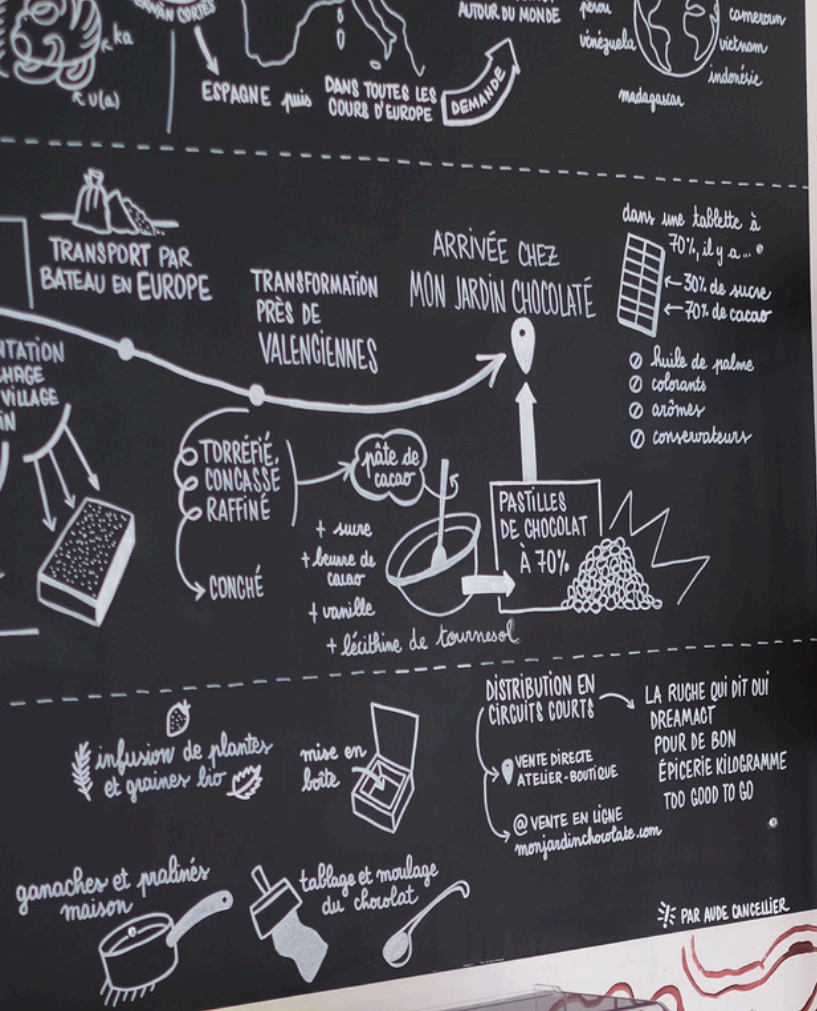 HERNÁN CORTÈS
ka
u(a)
ESPAGNE puis
DANS TOUTES LES
COURS D'EUROPE
DEMANDE
AUTOUR DU MONDE
pérou
vénézuela
madagascar
cameroun
vietnam
indonésie
TRANSPORT PAR
BATEAU EN EUROPE
TRANSFORMATION
PRÈS DE
VALENCIENNES
ARRIVÉE CHEZ
MON JARDIN CHOCOLATÉ
dans une tablette à
70%, il y a...
30% de sucre
70% de cacao
huile de palme
colorants
arômes
conservateurs
VILLAGE
TORRÉFIÉ,
CONCASSÉ
RAFFINÉ
CONCHÉ
pâte de
cacao
+ sucre
+ beurre de
cacao
+ vanille
+ lécithine de tournesol
PASTILLES
DE CHOCOLAT
À 70%
infusion de plantes
et graines bio
mise en
boîte
ganaches et pralinés
maison
tablage et moulage
du chocolat
DISTRIBUTION EN
CIRCUITS COURTS
VENTE DIRECTE
ATELIER-BOUTIQUE
@ VENTE EN LIGNE
monjardinchocolate.com
LA RUCHE QUI DIT OUI
DREAMACT
POUR DE BON
ÉPICERIE KILOGRAMME
TOO GOOD TO GO
PAR AUDE CANCELLIER